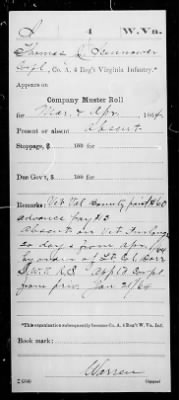 S 4 W.Va.
Thomas
Corpl., Co. A, 4 Reg't Virginia Infantry.*
Appears on
Company Muster Roll
for Mar & Apr, 1864
Present or absent Absent
Stoppage, $ 100 for
Due Gov't, $ 100 for
Remarks: Vet Vol Bounty paid $60
advance pay $13
Absent on Vet Furlough
30 days from Apr
by order of Lt. Col
D.W.V. App'td Corpl
from priv. Jan 21/64
*This organization subsequently became Co. A, 4 Reg't W. Va. Inf.
Book mark:
Warren
Copyist.